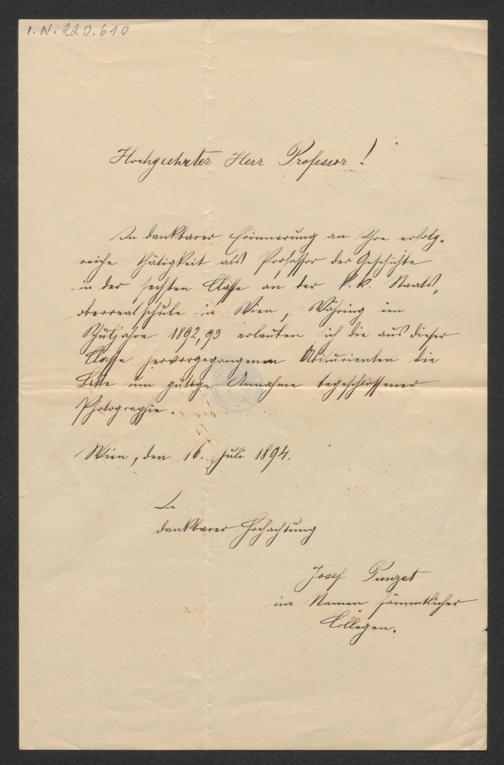 I.N. 220.610
Hochgeehrter Herr Professor!
In dankbarer Erinnerung an Ihre erfolg-
reiche Thätigkeit als Professor der Geschichte
in der sechsten Classe an der k.k. Staats-
oberrealschule in Wien, Währing im
Schuljahre 1892/93 erlauben sich die aus dieser
Classe hervorgegangenen Abiturienten die
Bitte um gütige Annahme beigeschlossener
Photographie.
Wien, den 16. Juli 1894.
In
dankbarer Hochachtung
Josef
im Namen sämmtlicher
Collegen.